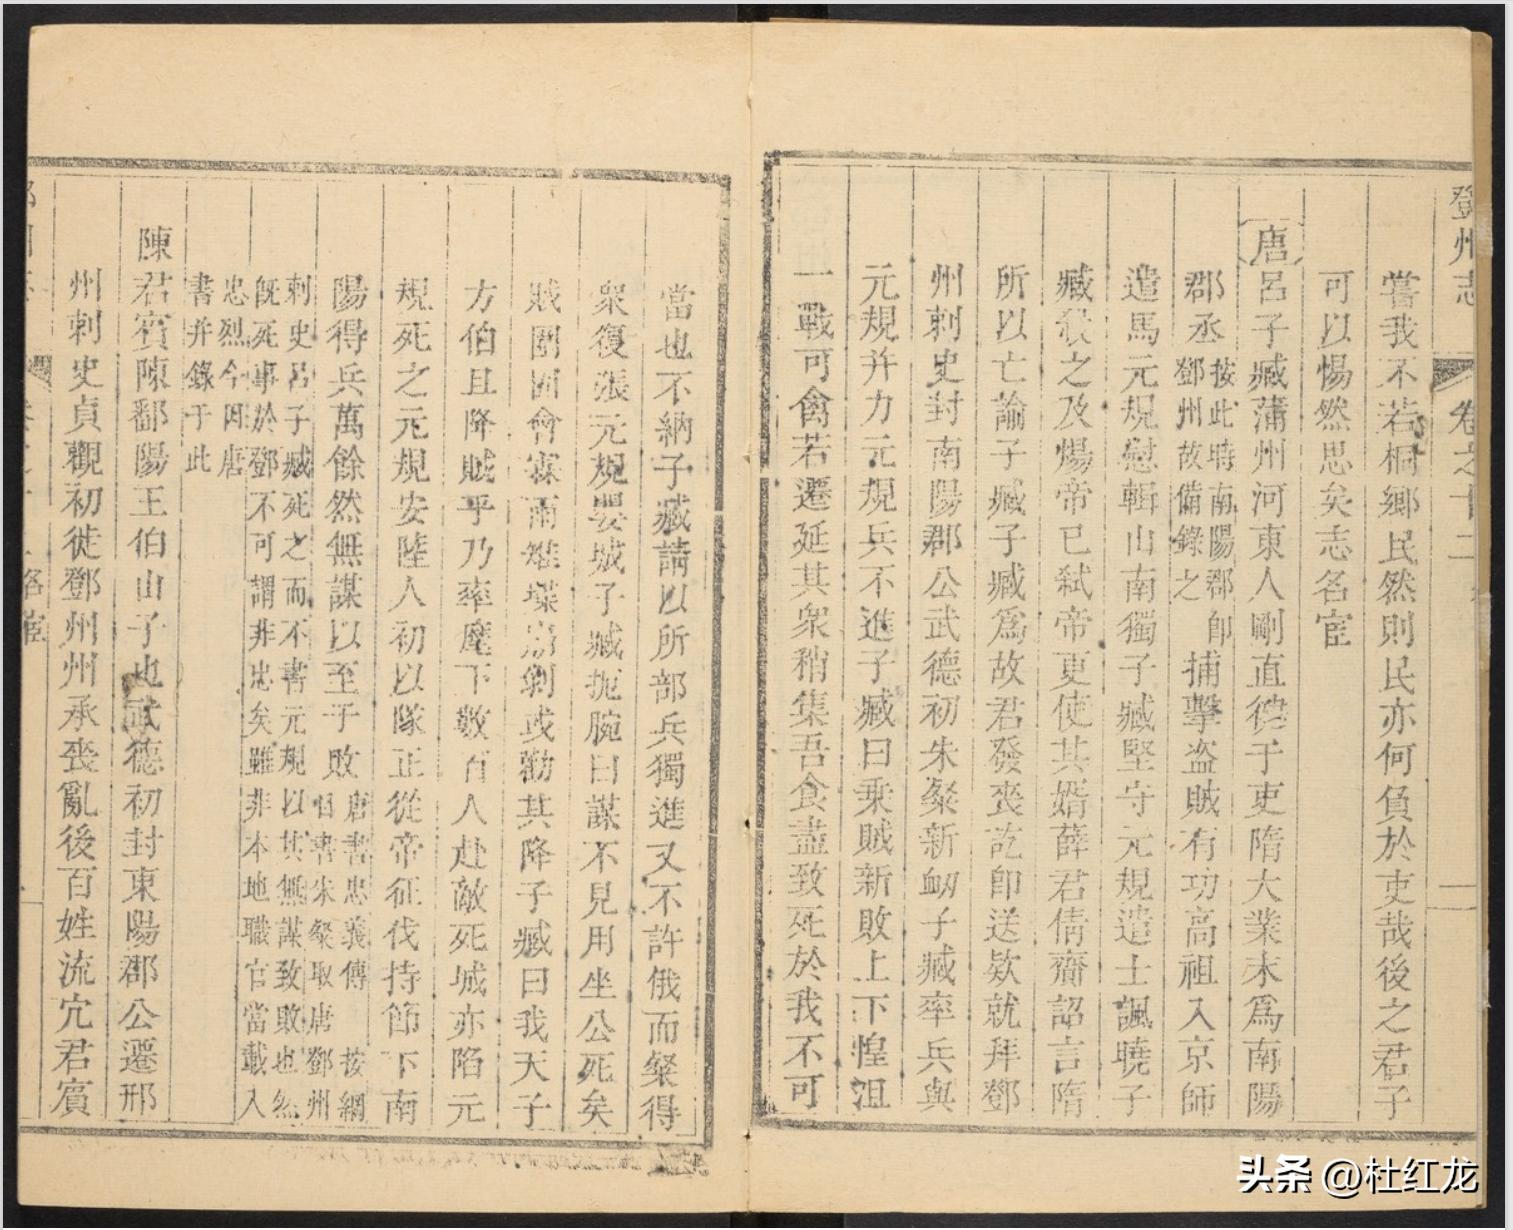 鄧州志 卷之十二
嘗我不若桐鄉民然則民亦何負於吏哉後之君子
可以惕然思矣志名宦
唐呂子臧蒲州河東人剛直健于吏隋大業末爲南陽
郡丞按此時南陽郡卽鄧州故備錄之捕擊盜賊有功高祖入京師
遣馬元規慰輯山南獨子臧堅守元規遣士諷曉子
臧殺之及煬帝已弒帝更使其婿薛君倩齎詔言隋
所以亡諭子臧子臧爲故君發喪訖卽送欵就拜鄧
州刺史封南陽郡公武德初朱粲新衂子臧率兵與
元規并力元規兵不進子臧曰乘賊新敗上下惶沮
一戰可禽若遷延其衆稍集吾食盡致死於我不可
當也不納子臧請以所部兵獨進又不許俄而粲得
衆復張元規嬰城子臧扼腕曰謀不見用坐公死矣
賊圍固會霖雨雉堞崩剝或勸其降子臧曰我天子
方伯且降賊乎乃率麾下數百人赴敵死城亦陷元
規死之元規安陸人初以隊正從帝征伐持節下南
陽得兵萬餘然無謀以至于敗唐書忠義傳 按綱目書朱粲取唐鄧州
刺史呂子臧死之而不書元規以其無謀致敗也然
旣死事於鄧不可謂非忠矣雖非本地職官當載入
忠烈今因唐
書并錄于此
陳君賓陳鄱陽王伯山子也武德初封東陽郡公遷邢
州刺史貞觀初徙鄧州州承喪亂後百姓流冗君賓
头条 @杜红龙